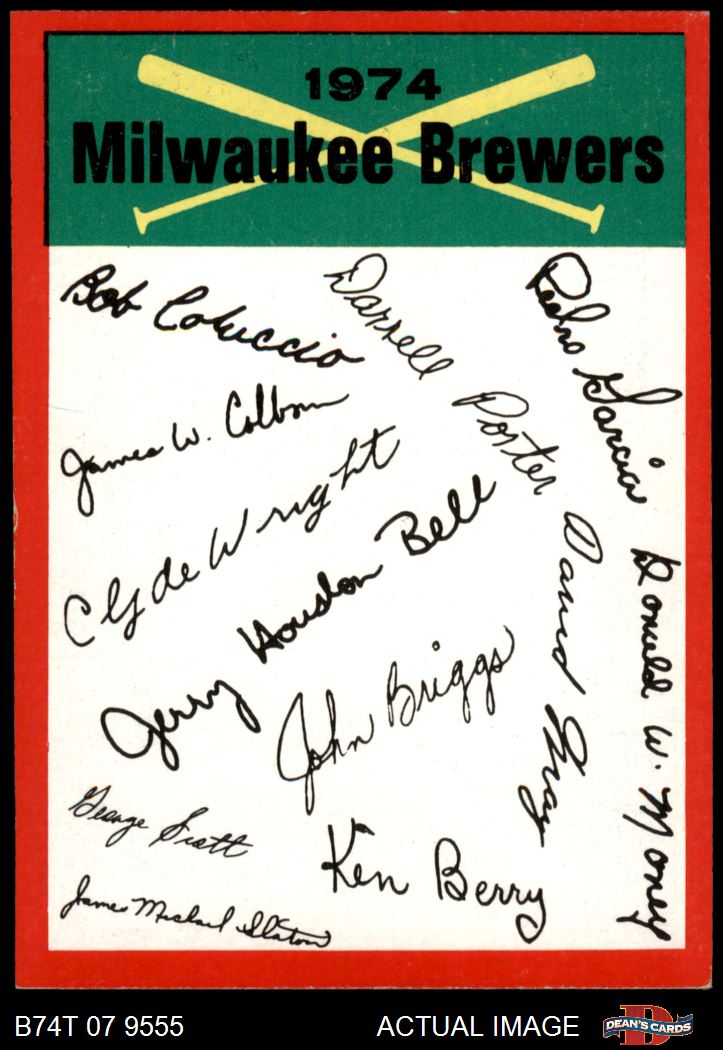 1974
Milwaukee Brewers
Bob Coluccio
Darrell Porter
Pedro Garcia
James W. Colborn
Clyde Wright
Jerry Houston Bell
David May
Donald W. Money
John Briggs
George Scott
Ken Berry
James Michael Slaton
B74T 07 9555
ACTUAL IMAGE
D
DEAN'S CARDS